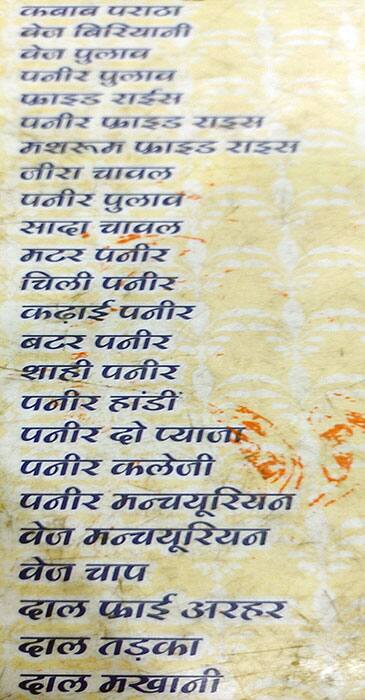 कबाब पराठा
वेज बिरियानी
वेज पुलाव
पनीर पुलाव
फ्राइड राईस
पनीर फ्राइड राइस
मशरूम फ्राइड राइस
जीरा चावल
पनीर पुलाव
सादा चावल
मटर पनीर
चिली पनीर
कढ़ाई पनीर
बटर पनीर
शाही पनीर
पनीर हांडीं
पनीर दो प्याजा
पनीर कलेजी
पनीर मन्चयूरियन
वेज मन्चयूरियन
वेज चाप
दाल फ्राई अरहर
दाल तड़का
दाल मखानी